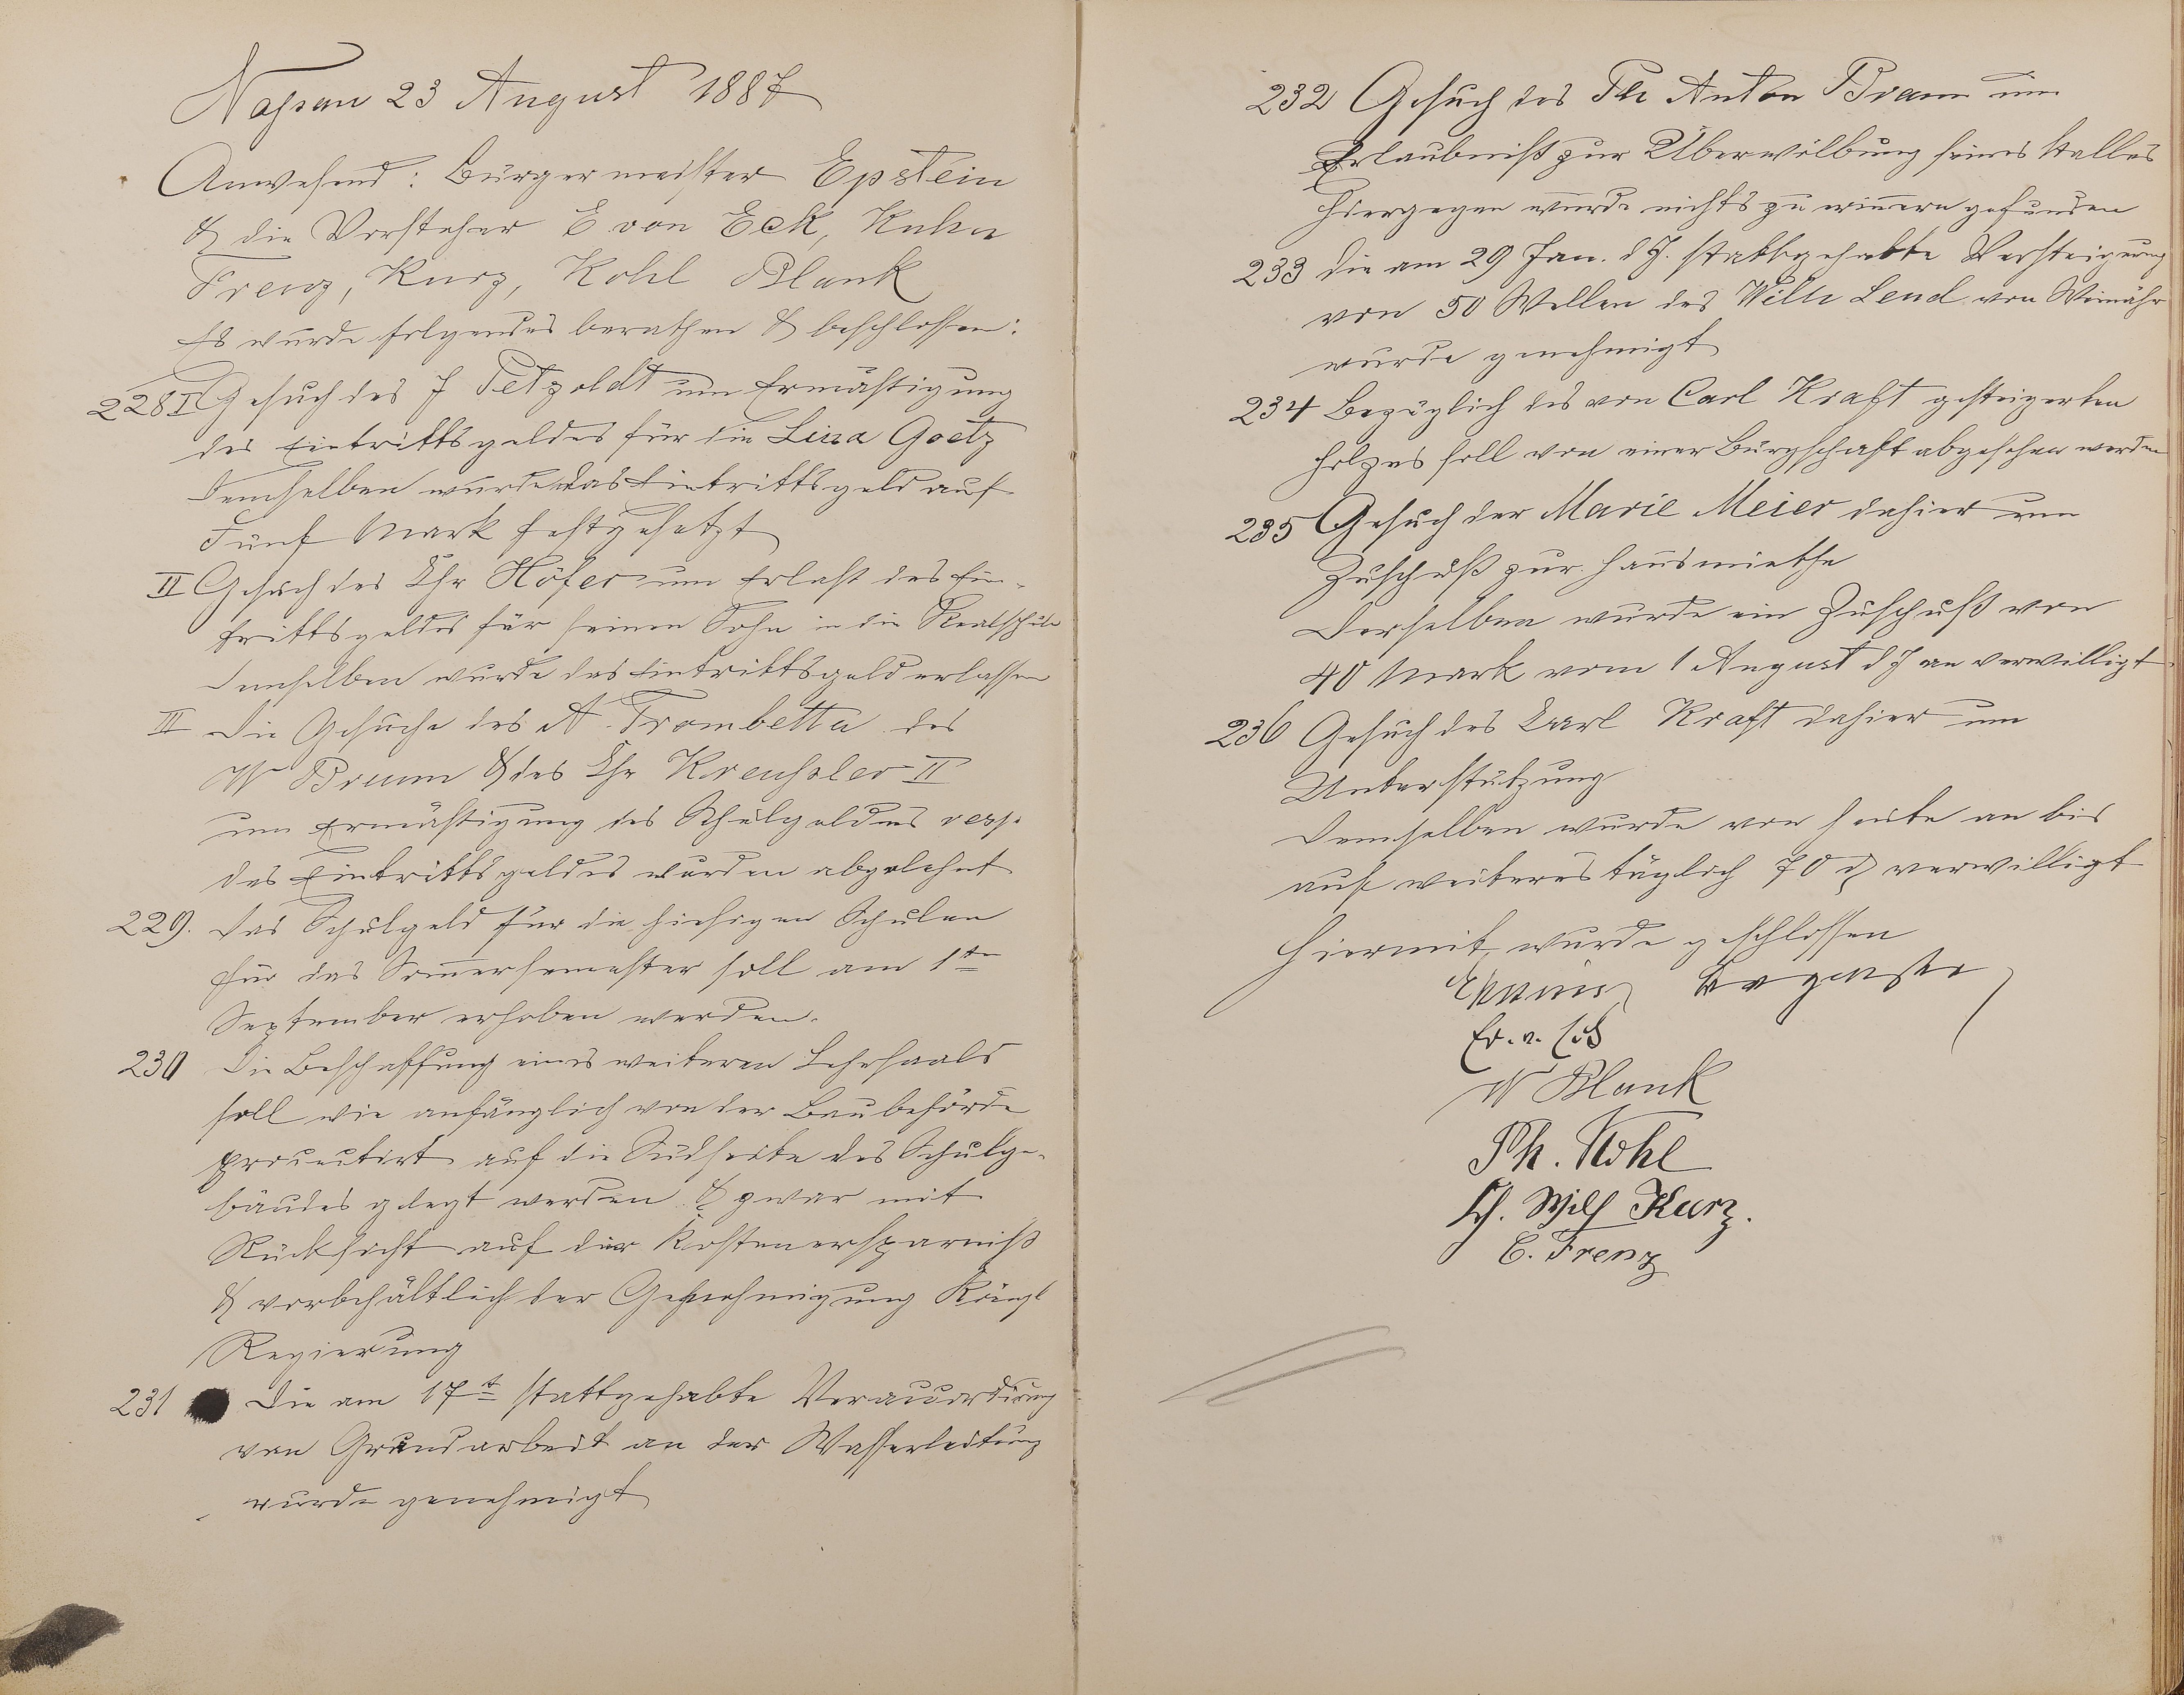 Nassau 23 August 1887
Anwesend: Bürgermeister Epstein
& die Vorsteher E von Eck, Kuhn
Frenz, Kurz, Kohl Blank
Es wurde folgendes berathen & beschlossen:
228 I Gesuch des J Petzoldt um Ermäßigung
des Eintrittsgeldes für die Lina Goetz
Demselben wurde das Eintrittsgeld auf
Fünf Mark festgesetzt
II Gesuch des Chr Höfer um Erlaß des Ein-
trittsgeldes für seinen Sohn in die Realschule
Demselben wurde das Eintrittsgeld erlassen
III Die Gesuche des A. Trombetta des
W Bruum & des Chr Kreuhsler II
um Ermäßigung des Schulgeldes resp.
des Eintrittsgeldes wurden abgelehnt
229. Das Schulgeld für die hiesigen Schulen
für das Sommersemester soll am 1ten
September erhoben werden.
230 Die Beschaffung eines weiteren Lehrsaals
soll wie anfänglich von der Baubehörde
projectirt auf die Südseite des Schulge-
bäudes gelegt werden & zwar mit
Rücksicht auf die Kostenersparniß
& vorbehältlich der Genehmigung Königl
Regierung
231 Die am 17t stattgehabte Veraccordirung
von Grundarbeit an der Wasserleitung
wurde genehmigt
232 Gesuch des Ph Anton Braun um
Erlaubniß zur Überwölbung seines Stalles
Hiergegen wurde nichts zu erinnern gefunden
233 Die am 29 Jan. d J. stattgehabte Versteigerung
von 50 Wellen des Wilh Lend von Weinähr
wurde genehmigt
234 Bezüglich des von Carl Kraft gesteigerten
Holzes soll von einer Bürgschaft abgesehen werden
235 Gesuch der Marie Meier dahier um
Zuschuß zur Hausmiethe
Derselben wurde ein Zuschuß von
40 Mark vom 1 August d J an verwilligt
236 Gesuch des Carl Kraft dahier um
Unterstützung
Demselben wurde von heute an bis
auf weiteres täglich 70 ₰ verwilligt
Hiermit wurde geschlossen
Epstein Bürgermstr
Er. v. Eck
W Blank
Ph. Kohl
Ch. Wilh Kurz.
C. Frenz